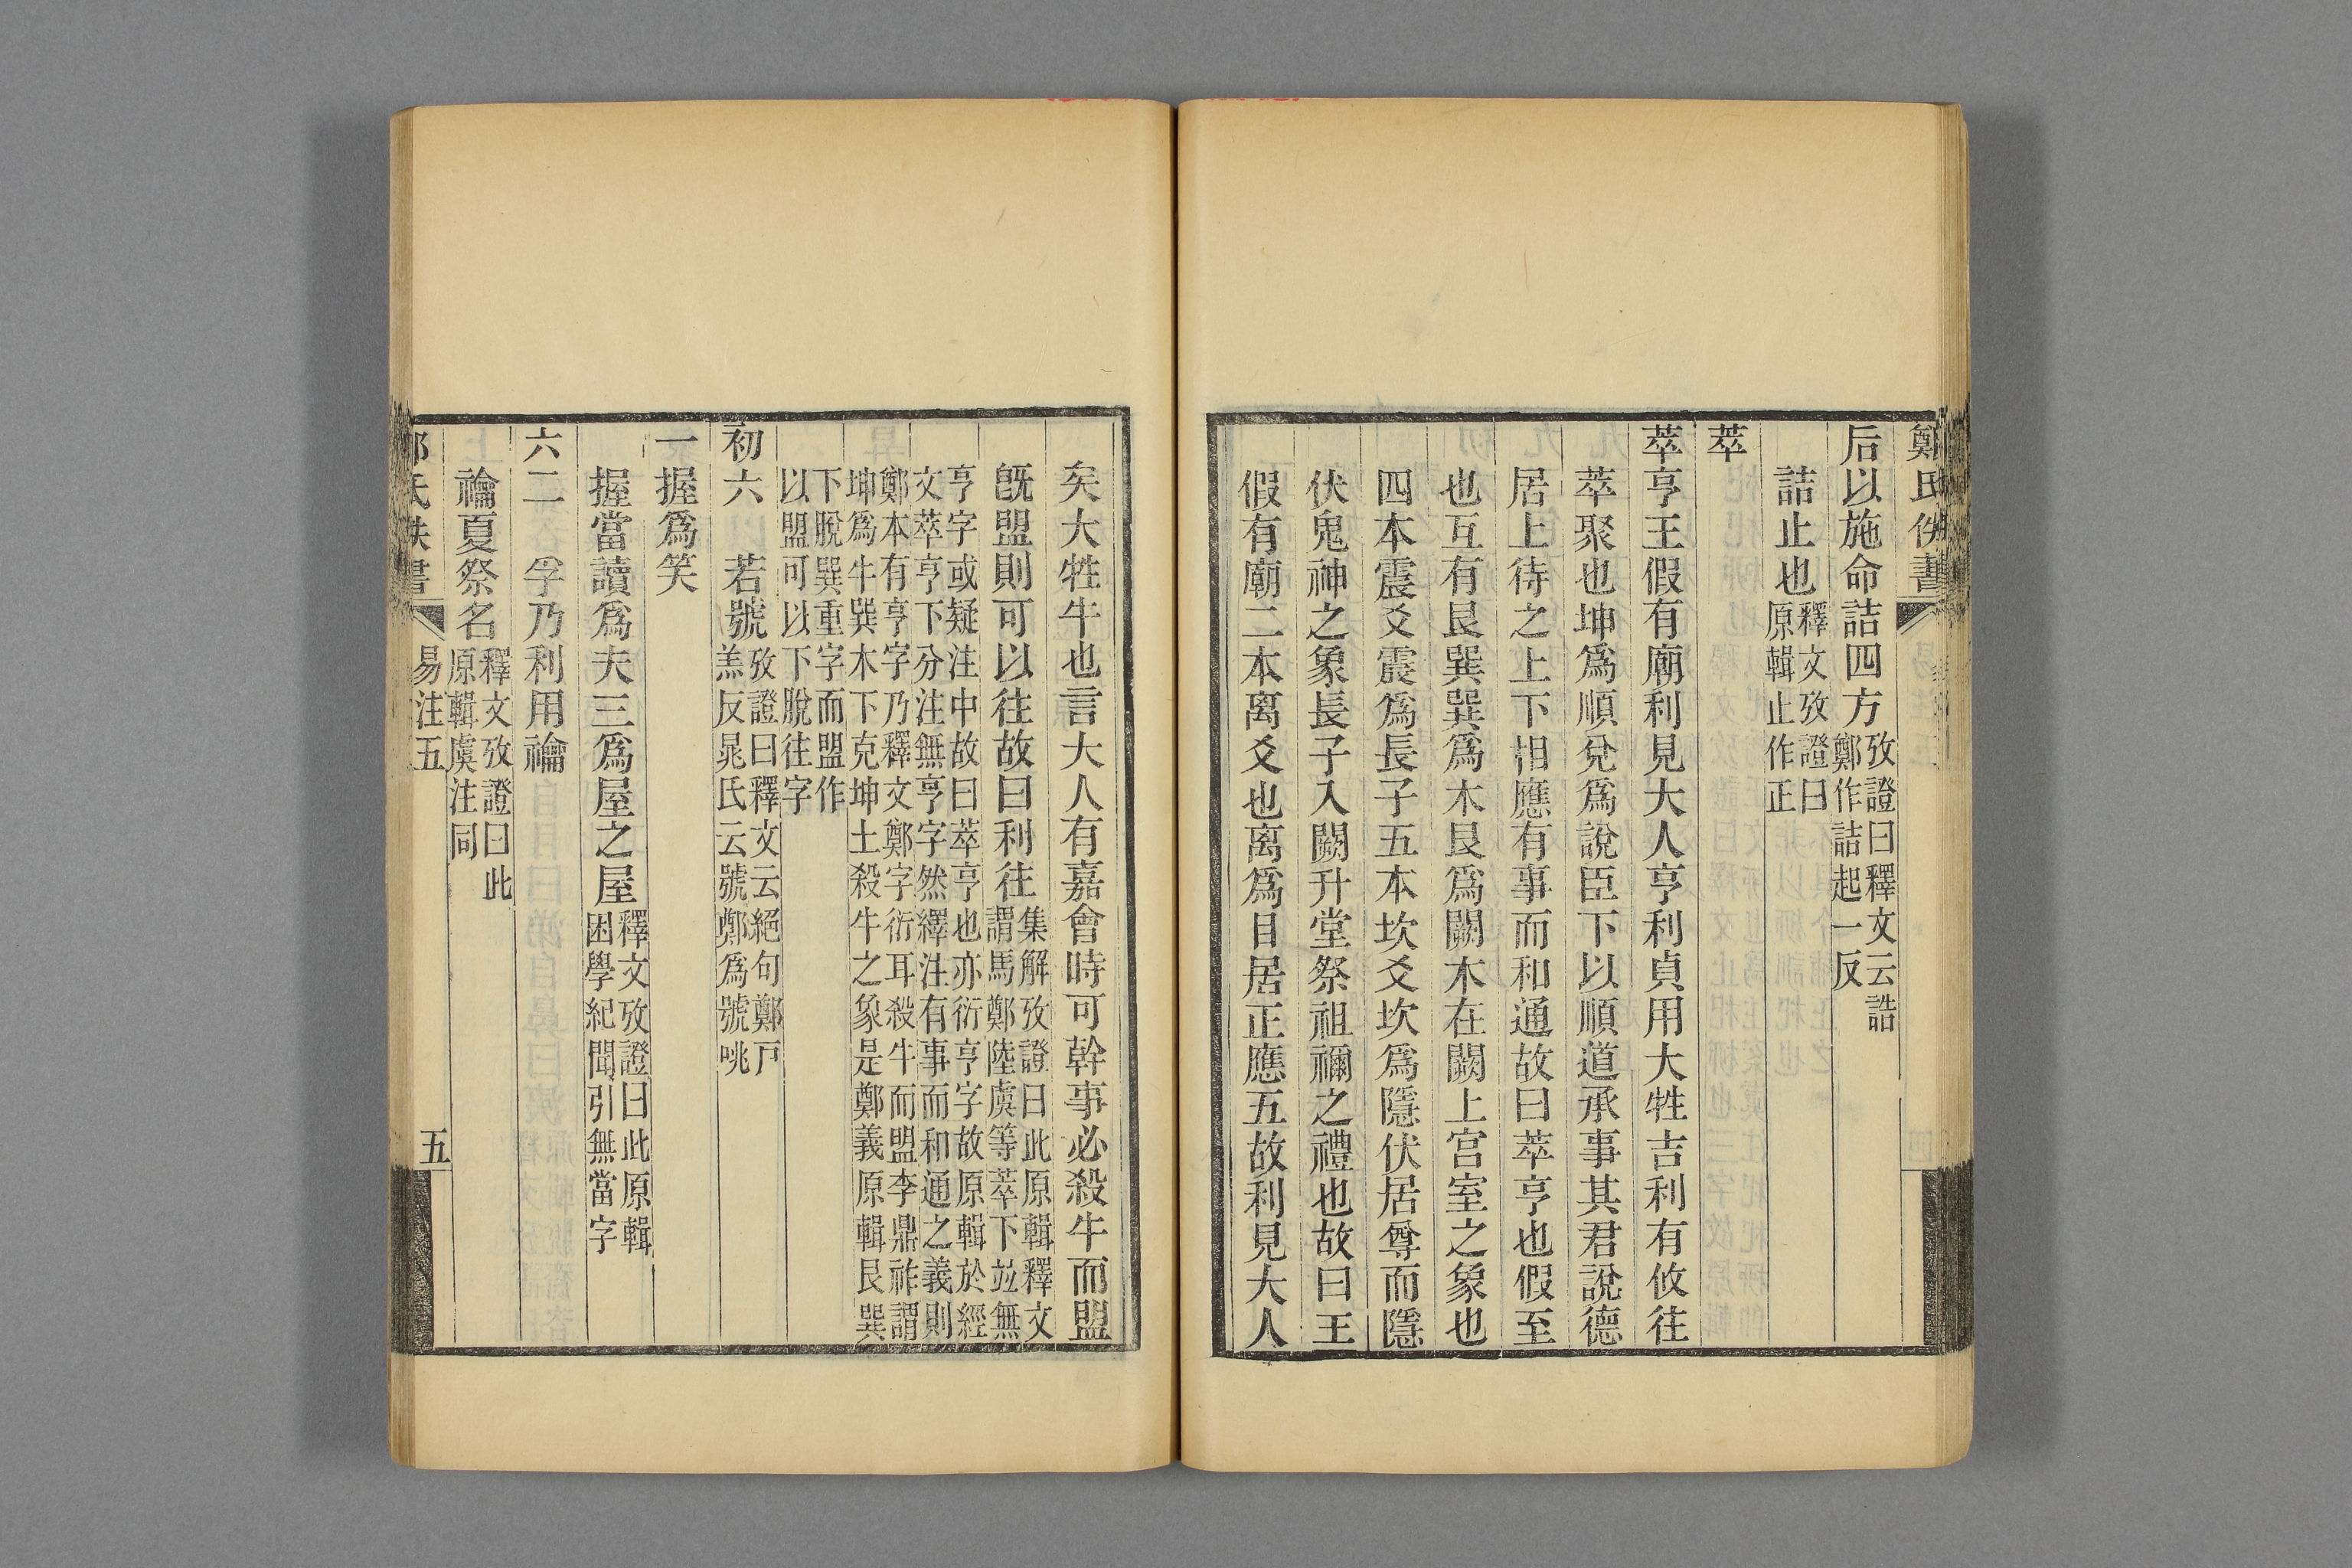 鄭氏佚書
后以施命詰四方攷證曰釋文云誥鄭作詰起一反
詰止也釋文攷證曰原輯止作正
萃
萃亨王假有廟利見大人亨利貞用大牲吉利有攸往
萃聚也坤爲順兌爲說臣下以順道承事其君說德
居上待之上下相應有事而和通故曰萃亨也假至
也互有艮巽巽爲木艮爲闕木在闕上宮室之象也
四本震爻震爲長子五本坎爻坎爲隱伏居尊而隱
伏鬼神之象長子入闕升堂祭祖禰之禮也故曰王
假有廟二本离爻也离爲目居正應五故利見大人
矣大牲牛也言大人有嘉會時可幹事必殺牛而盟
旣盟則可以往故曰利往集解攷證曰此原輯釋文謂馬鄭陸虞等萃下竝無
亨字或疑注中故曰萃亨也亦衍亨字故原輯於經文萃亨下分注無亨字然繹注有事而和通之義則
鄭本有亨字乃釋文鄭字衍耳殺牛而盟李鼎祚謂坤爲牛巽木下克坤土殺牛之象是鄭義原輯艮巽
下脫巽重字而盟作以盟可以下脫往字
初六　若號攷證曰釋文云絕句鄭戸羔反晁氏云號鄭爲號咷
一握爲笑
握當讀爲夫三爲屋之屋釋文攷證曰此原輯困學紀聞引無當字
六二　孚乃利用禴
禴夏祭名釋文攷證曰此原輯虞注同
氏佚書　易注五　五